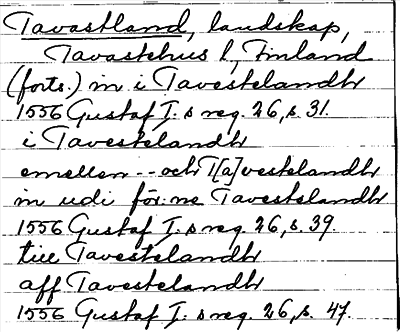 Tavastland, landskap,
Tavastehus l, Finland
(forts.) in i Tavestelandh
1556 Gustaf I:s reg. 26, s. 31.
i Tavestelandh
emellan -- och T[a]vestelandh
in udi för:ne Tavestelandh
1556 Gustaf I:s reg. 26, s. 39.
till Tavestelandh
aff Tavestelandh
1556 Gustaf I:s reg. 26, s. 47.